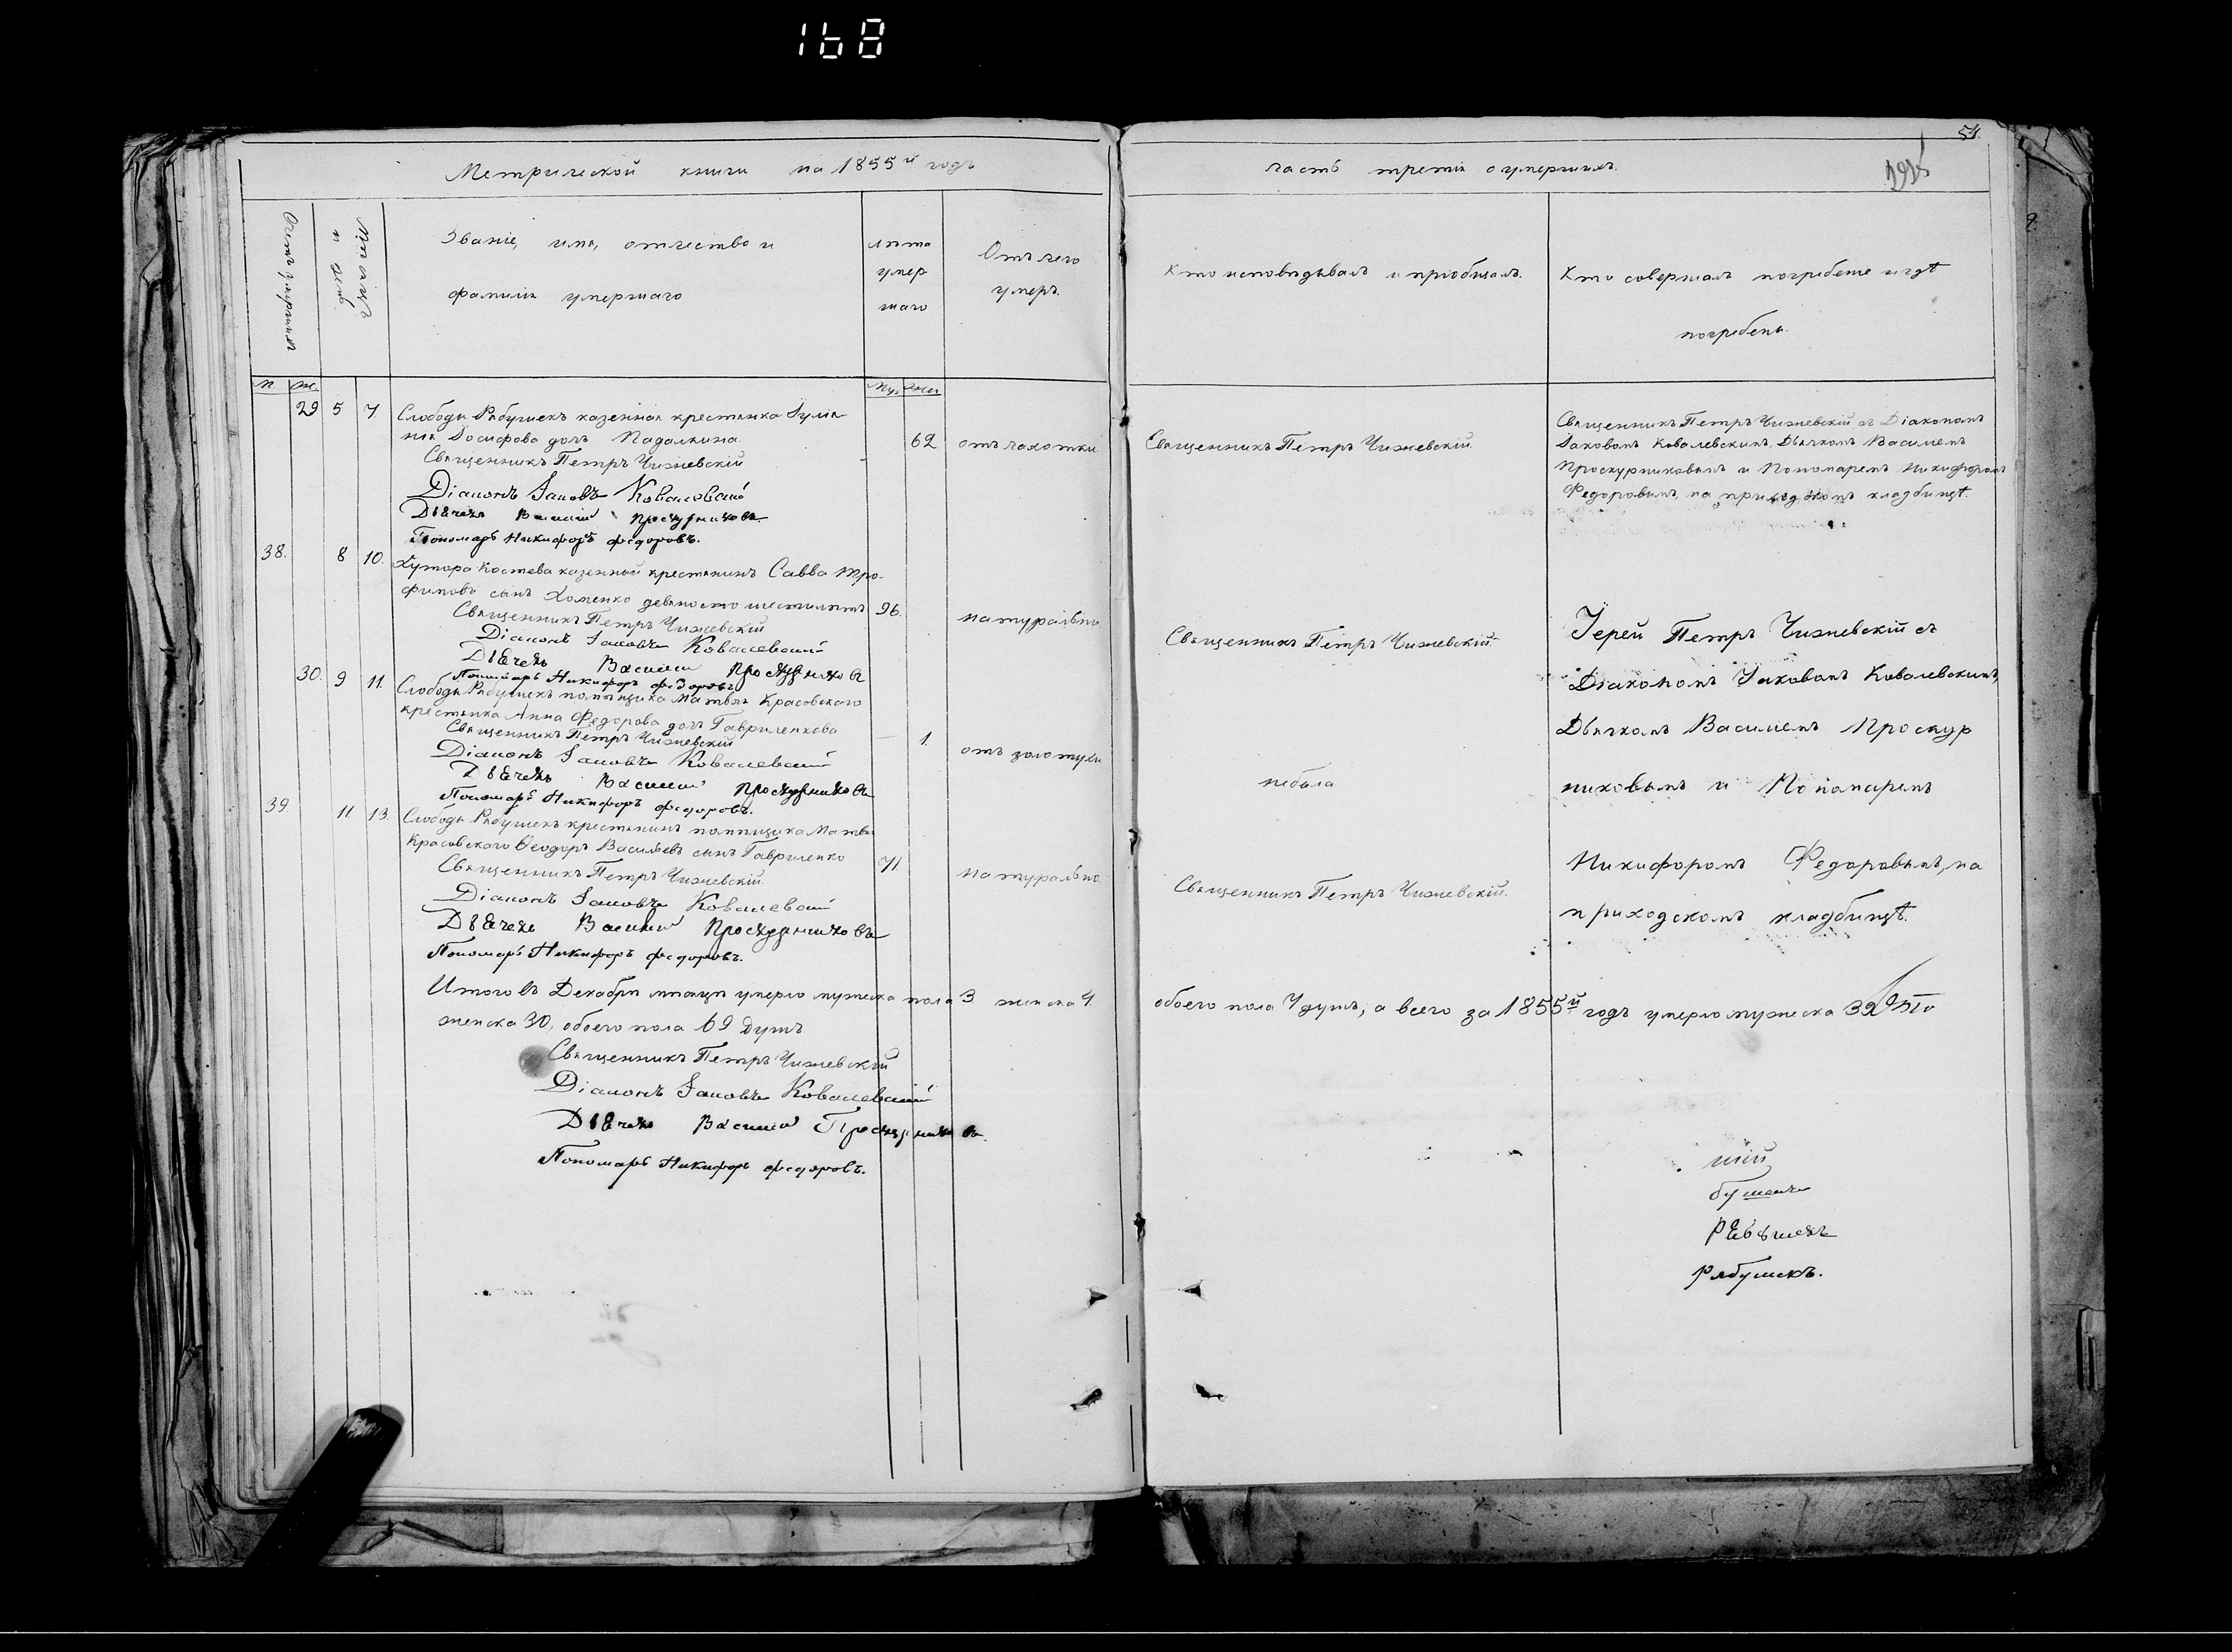 168
54.
Метрической книги на 1855й годъ
часть третія о умершихъ.
Счетъ умершихъ
Мѣсяцъ и день
Званіе, имя, отчество и
фамилія умершаго
лѣта
умер
шаго
Отъ чего
умеръ.
Кто исповѣдывалъ и пріобщалъ.
Кто совершалъ погребеніе и гдѣ
погребены.
м. ж.
Му. жен
29 5 7. Слободы Рябушекъ казенная крестьянка Іулiа-
нія Досифова дочь Падалкина
62 отъ чахотки
Священникъ Петръ Чижевскій
Діаконъ Іаковъ Ковалевскій
Дьячекъ Василій Проскурниковъ.
Пономарь Никифоръ Федоровъ.
Священникъ Петръ Чижевскій.
Священникъ Петръ Чижевскій съ Діакономъ
Іаковомъ Ковалевскимъ, Дьячкомъ Василіемъ
Проскурниковымъ и Пономаремъ Никифоромъ
Федоровымъ, на приходскомъ кладбищѣ.
38. 8 10. Хутора Костева казенный крестьянинъ Савва Тро-
фимовъ сынъ Хоменко девяносто шести лѣтъ
96. натурально
Священникъ Петръ Чижевскій
Діаконъ Іаковъ Ковалевскій
Дьячекъ Василій Проскурниковъ
Пономарь Никифоръ Федоровъ
Священникъ Петръ Чижевскій.
30. 9 11. Слободы Рябушекъ помѣщика Матвѣя Красовского
крестьянка Анна Федорова дочь Гавриленкова
1. отъ золотухи
Священникъ Петръ Чижевскій
Діаконъ Іаковъ Ковалевскій
Дьячекъ Василій Проскурниковъ
Пономарь Никифоръ Федоровъ.
небыла
39. 11 13. Слободы Рябушекъ крестьянинъ помѣщика Матвѣя
Красовского Ѳеодоръ Васильевъ сынъ Гавриленко
71. натурально.
Священникъ Петръ Чижевскій.
Діаконъ Іаковъ Ковалевскій
Дьячекъ Василій Проскурниковъ
Пономарь Никифоръ Федоровъ.
Священникъ Петръ Чижевскій.
Іерей Петръ Чижевскій съ
Діакономъ Іаковомъ Ковалевскимъ,
Дьячкомъ Василіемъ Проскур
никовымъ и Пономаремъ
Никифоромъ Федоровымъ, на
приходскомъ кладбищѣ.
Итого въ Декабрѣ мѣсяцѣ умерло мужеска пола 3 женска 4
обоего пола 7 душъ, а всего за 1855й годъ умерло мужеска 39
женска 30, обоего пола 69 душъ
Священникъ Петръ Чижевскій
Діаконъ Іаковъ Ковалевскій
Дьячекъ Василій Проскурниковъ.
Пономарь Никифоръ Федоровъ.
бушекъ
Рябушекъ.